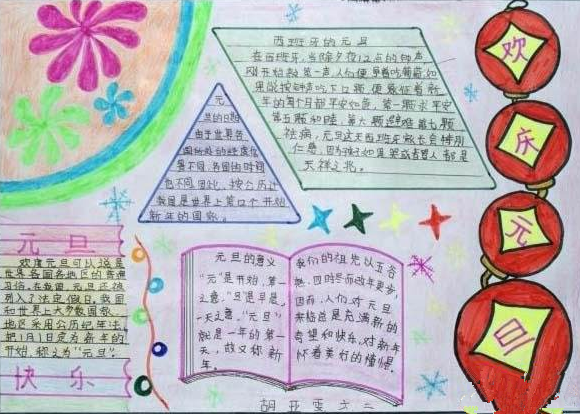 西班牙的元旦
在西班牙,当除夕夜12点的钟声
刚开始敲第一声,人们便争着吃葡萄,如
果能按钟声吃下12颗,便象征着新
年的每个月都平安如意。第一颗求平安
第五颗和睦,第六颗避难,第七颗
祛病,元旦这天西班牙家长会特别
仁慈
天祥之兆。
元
旦的日期
由于世界各
国所处的经度位
置不同,各国的时间
也不同,因此,按公历计
我国是世界上第12个开始
新年的国家。
元旦
欢度元旦可以说是
世界各国各地区的普遍
习俗,在我国,元旦还被
列入了法定假日。我国
和世界上大多数国家、
地区采用公历纪年法,
把1月1日定为新年的
开始,称之为“元旦”。
快乐
元旦的意义
“元”是开始,第一
之意,“旦”是早晨,
一天之意,“元旦”
就是一年的第一
天,故又称新
年。
我们的祖先以五谷
熟,四时尽而改年更岁,
因而,人们对元旦
来临总是充满新的
希望和快乐,对新年
怀着美好的憧憬。
欢
庆
元
旦